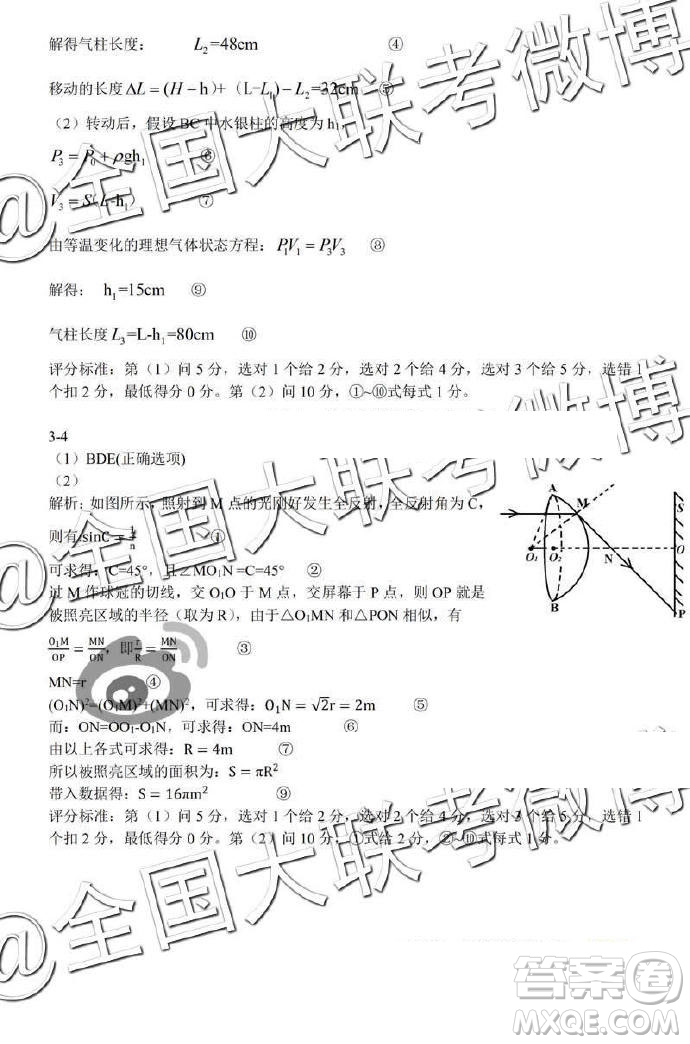 解得气柱长度： L₂=48cm ④
移动的长度ΔL=(H－h)+（L-L₁)－L₂=32cm ⑤
（2）转动后，假设 BC 中水银柱的高度为 h₁，
P₃=P₀+ρgh₁ ⑥
V₃=S(L-h₁) ⑦
由等温变化的理想气体状态方程：P₁V₁=P₃V₃ ⑧
解得： h₁=15cm ⑨
气柱长度 L₃=L-h₁=80cm ⑩
评分标准：第（1）问 5 分，选对 1 个给 2 分，选对 2 个给 4 分，选对 3 个给 5 分，选错 1
个扣 2 分，最低得分 0 分。第（2）问 10 分，①~⑩式每式 1 分。
3-4
（1）BDE(正确选项)
（2）
解析：如图所示，照射到 M 点的光刚好发生全反射，全反射角为 C，
则有 sinC=1/n ①
可求得：C=45°，且∠MO₁N =C=45° ②
过 M 作球冠的切线，交 O₁O 于 M 点，交屏幕于 P 点，则 OP 就是
被照亮区域的半径（取为 R），由于△O₁MN 和△PON 相似，有
O₁M/OP=MN/ON，即r/R=MN/ON ③
MN=r ④
(O₁N)²=(O₁M)²+(MN)²，可求得：O₁N=√2r=2m ⑤
而：ON=OO₁-O₁N，可求得：ON=4m ⑥
由以上各式可求得：R=4m ⑦
所以被照亮区域的面积为：S=πR²
带入数据得：S=16πm² ⑨
评分标准：第（1）问 5 分，选对 1 个给 2 分，选对 2 个给 4 分，选对 3 个给 5 分，选错 1
个扣 2 分，最低得分 0 分。第（2）问 10 分，①式给 2 分，②~⑩式每式 1 分。
A
M
S
O₁
O₂
N
O
B
P
@全国大联考微博
@全国大联考微博
答案卷
MXQE.COM